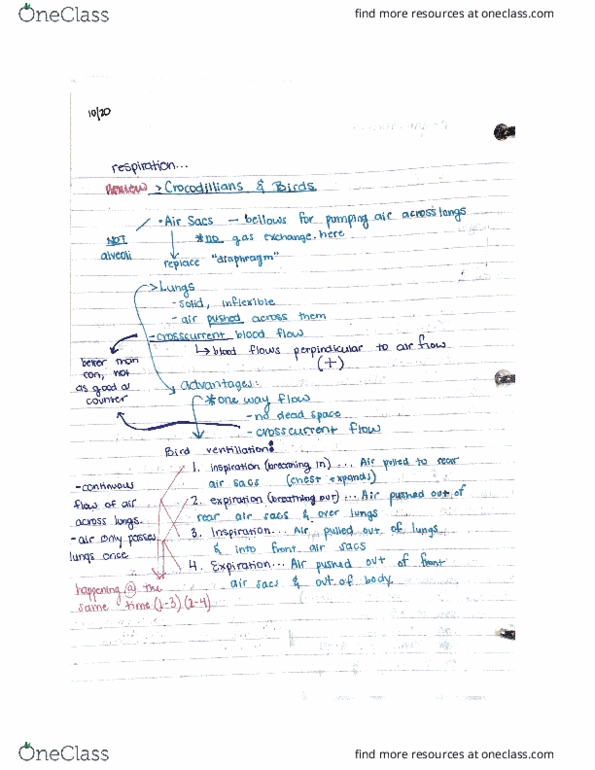 OneClass
find more resources at oneclass.com
10/20
respiration...
Review > Crocodillians & Birds
• Air Sacs — bellows for pumping air across lungs
NOT alveoli
* no gas exchange here
replace "diaphragm"
> Lungs
- solid, inflexible
- air pushed across them
- crosscurrent blood flow
↳ blood flows perpindicular to air flow
(+)
better than
con, not
as good as
counter
advantages:
* one way flow
- no dead space
- crosscurrent flow
Bird ventillation:
1. inspiration (breathing in) ... Air pulled to rear
air sacs (chest expands)
2. expiration (breathing out) ... Air pushed out of
rear air sacs & over lungs
3. Inspiration... Air pulled out of lungs
& into front air sacs
4. Expiration... Air pushed out of front
air sacs & out of body.
- continuous
flow of air
across lungs.
- air only passes
lungs once
happening @ the
same time (1-3) (2-4)
OneClass
find more resources at oneclass.com